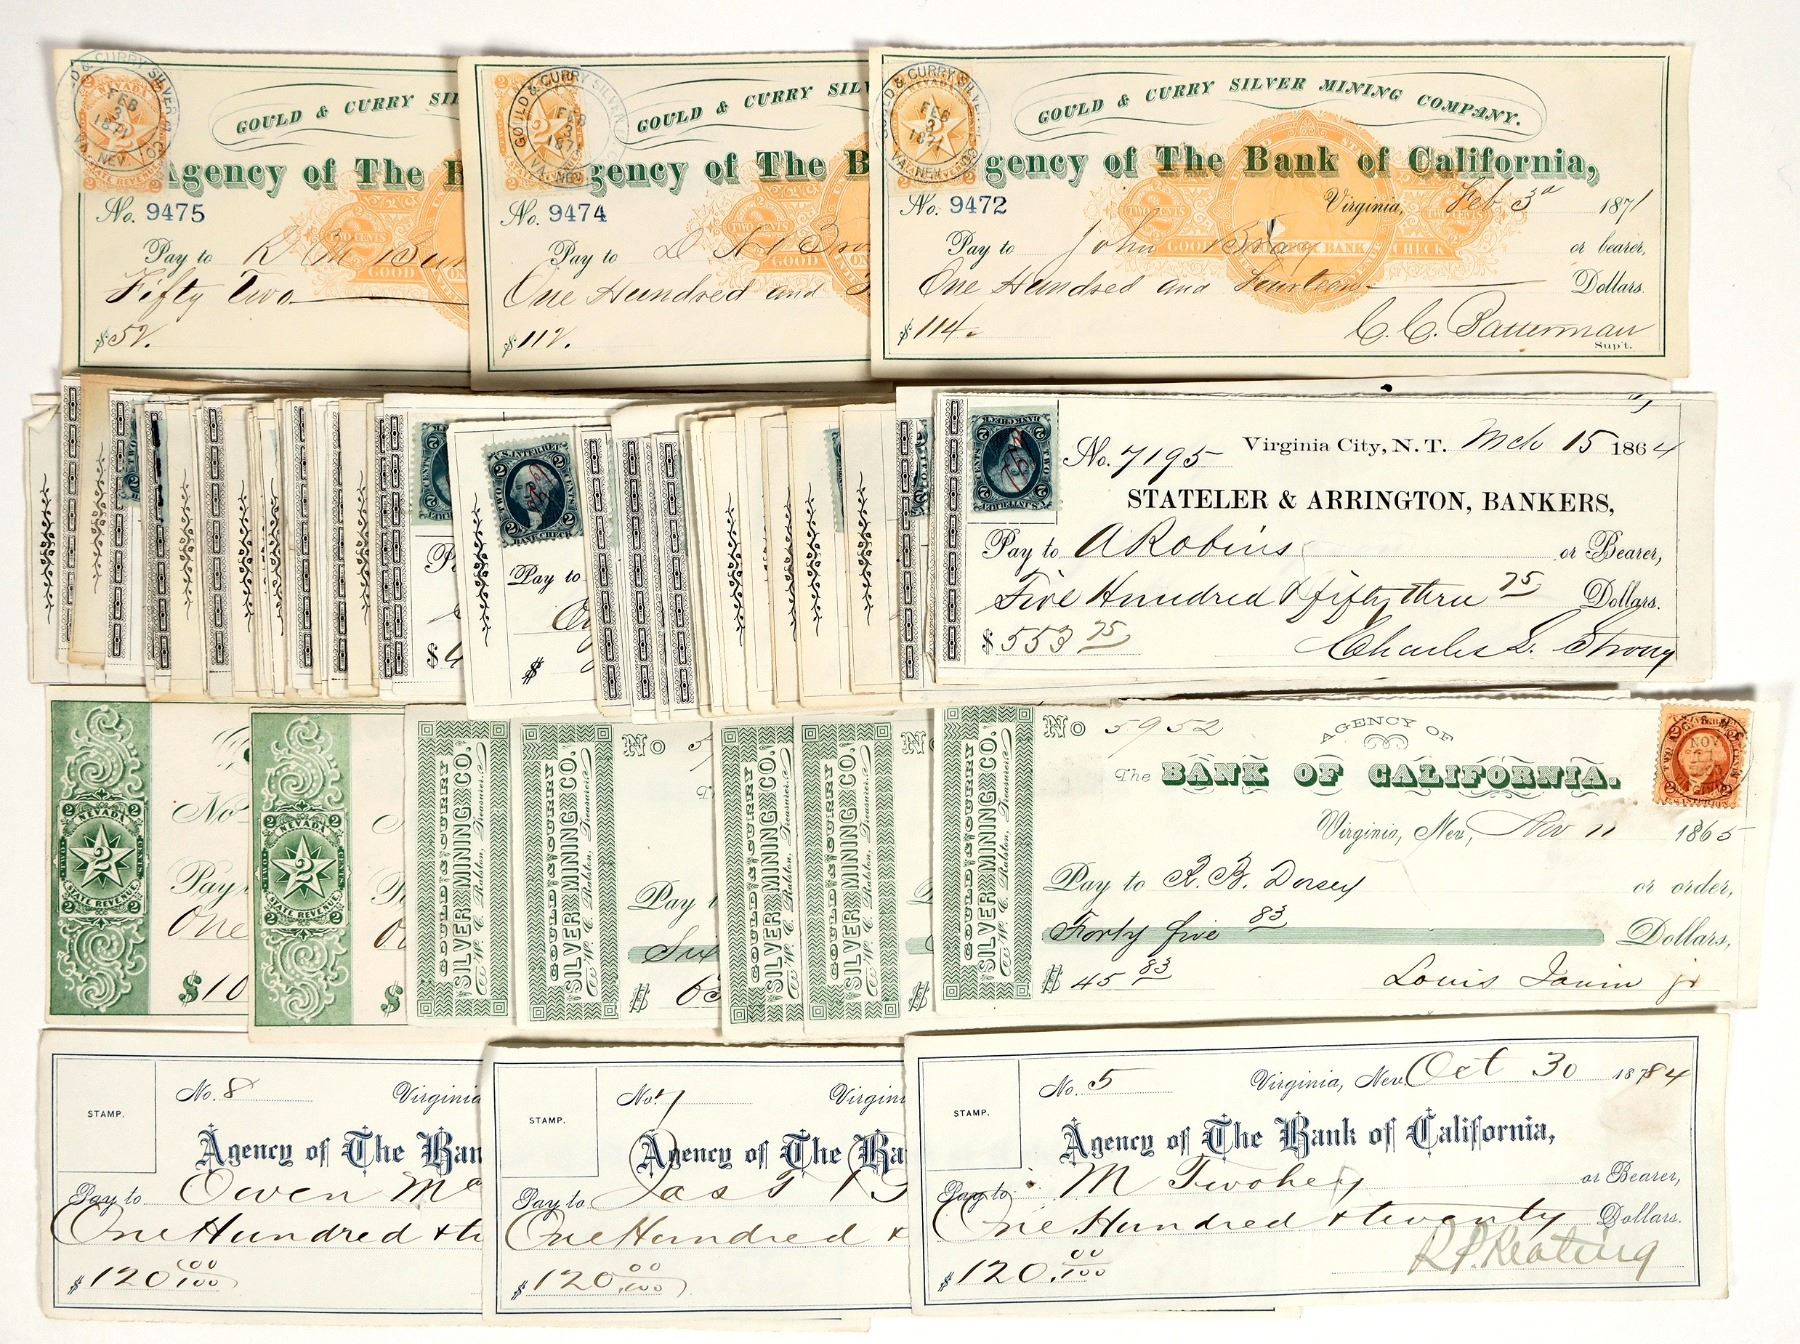 GOULD & CURRY SIL
Agency of The B
No. 9475
Pay to R M Bur
Fifty Two
$52.
GOULD & CURRY SILVER M. CO.
FEB
3
1871
VA. NEV.
NEVADA
2
STATE REVENUE
TWO CENTS
GOOD
GOULD & CURRY SILV
Agency of The B
No. 9474
Pay to D
One Hundred and
$112.
GOULD & CURRY SILVER
FEB
3
1871
VA. NEV.
TWO CENTS
GOOD
GOULD & CURRY SILVER MINING COMPANY.
Agency of The Bank of California,
No. 9472
Virginia, Feb 3d 1871
Pay to John Bray or bearer,
One Hundred and Fourteen Dollars.
$114.
C. C. Batterman
Sup't.
GOULD & CURRY SILVER
FEB
3
1871
VA. NEV.
TWO CENTS
GOOD
BANK CHECK
U.S. INTER. REV.
TWO CENTS
2 2
BANK CHECK
Pay to
$
$
No. 7195 Virginia City, N. T. Mch 15 1864
STATELER & ARRINGTON, BANKERS,
Pay to A Robins or Bearer,
Five Hundred & fifty three 75 Dollars.
$ 553 75
Charles L. Strong
2 2
NEVADA
TWO CENTS
2
STATE REVENUE
No
Pay
One
$10
2 2
NEVADA
TWO CENTS
2
STATE REVENUE
$
GOULD & CURRY
SILVER MINING CO.
W. C. Ralston, Treasurer
GOULD & CURRY
SILVER MINING CO.
W. C. Ralston, Treasurer
No 5
Pay t
Six
$ 63
GOULD & CURRY
SILVER MINING CO.
W. C. Ralston, Treasurer
GOULD & CURRY
SILVER MINING CO.
W. C. Ralston, Treasurer
GOULD & CURRY
SILVER MINING CO.
W. C. Ralston, Treasurer
No 5952
AGENCY OF
The BANK OF CALIFORNIA.
Virginia, Nev, Nov 11 1865
Pay to R. B. Dorsey or order,
Forty five 83 Dollars,
$ 45 83
Louis Janin jr
NOV
STAMP.
No. 8 Virginia
Agency of The Ban
Pay to Owen Mc
One Hundred & tw
$ 120 00/100
STAMP.
No. 7 Virgin
Agency of The Ba
Pay to Jas T
One Hundred &
$ 120 00/100
STAMP.
No. 5 Virginia, Nev. Oct 30 1884
Agency of The Bank of California,
Pay to M Twohey or Bearer,
One Hundred & twenty Dollars.
$ 120. 00/100
R. P. Keating